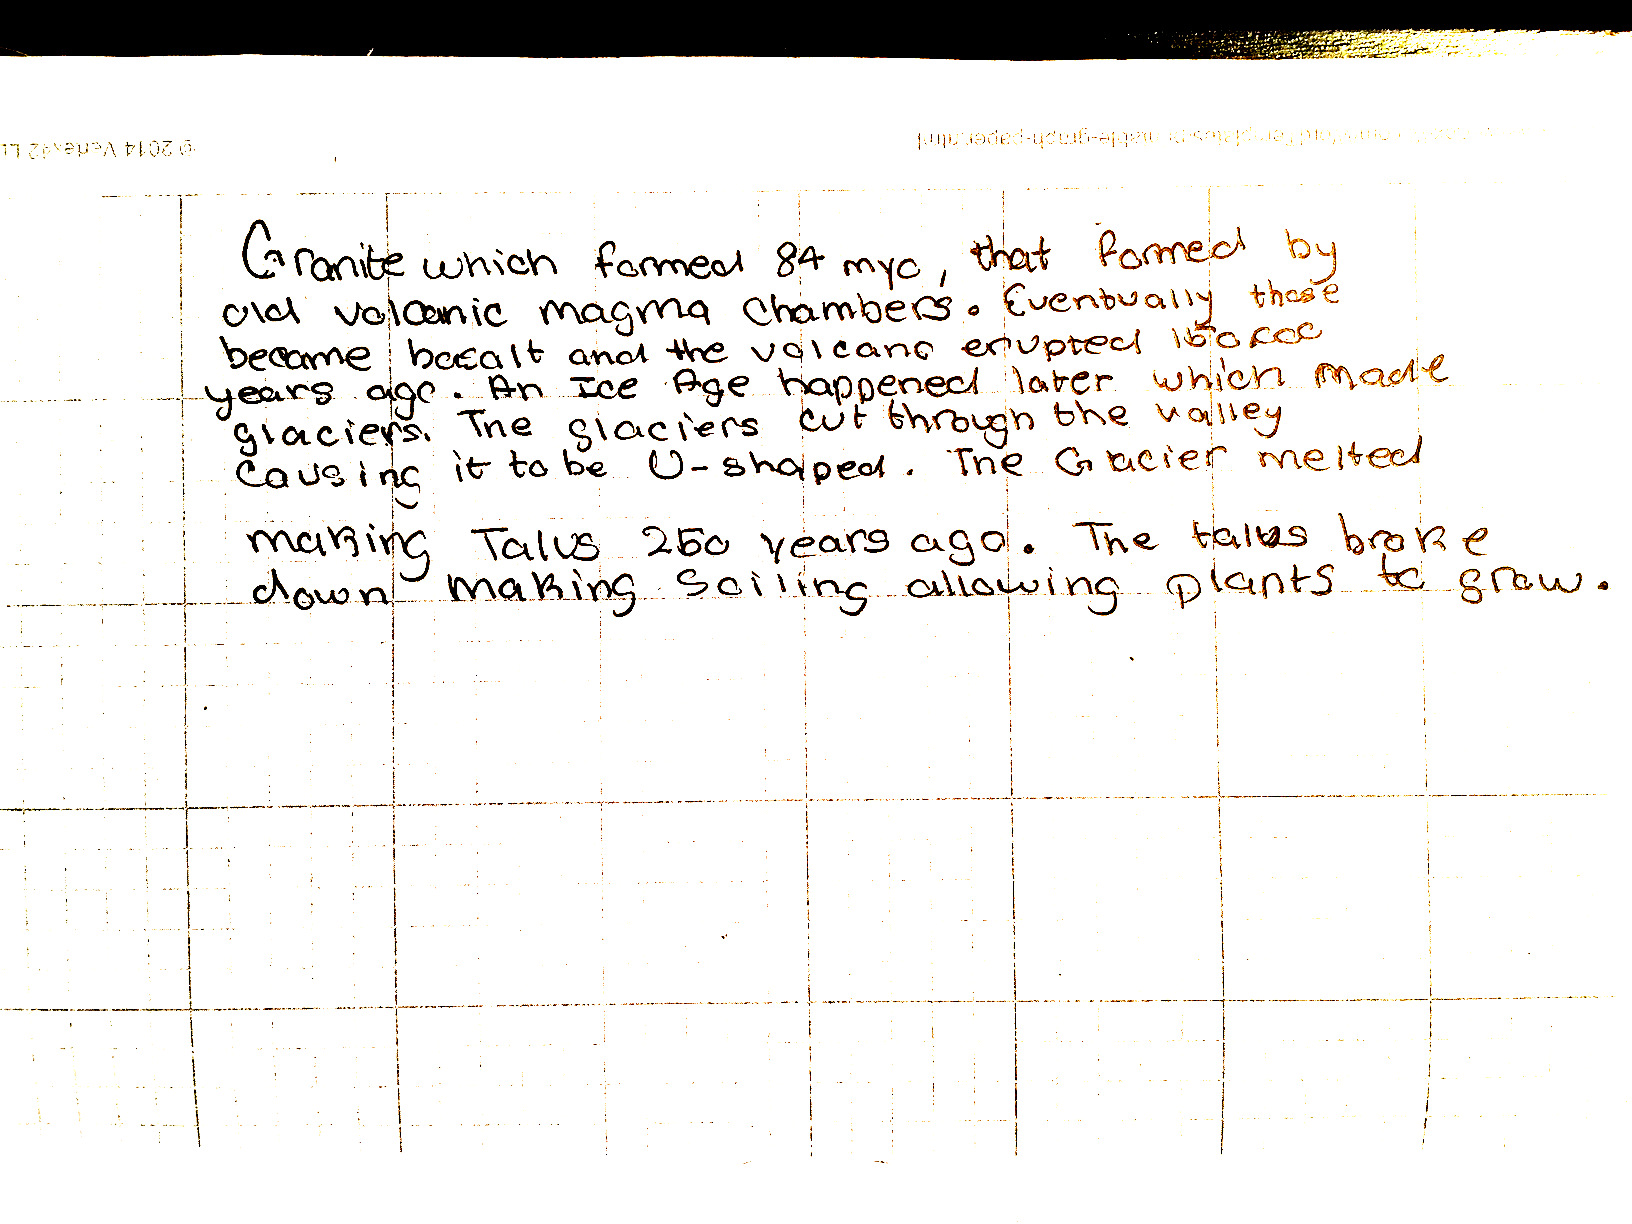 Granite which formed 84 mya, that formed by
old volcanic magma chambers. Eventually those
became basalt and the volcano erupted 150000
years ago. An Ice Age happened later which made
glaciers. The glaciers cut through the valley
causing it to be U-shaped. The Glacier melted
making Talus 250 years ago. The talus broke
down making soiling allowing plants to grow.